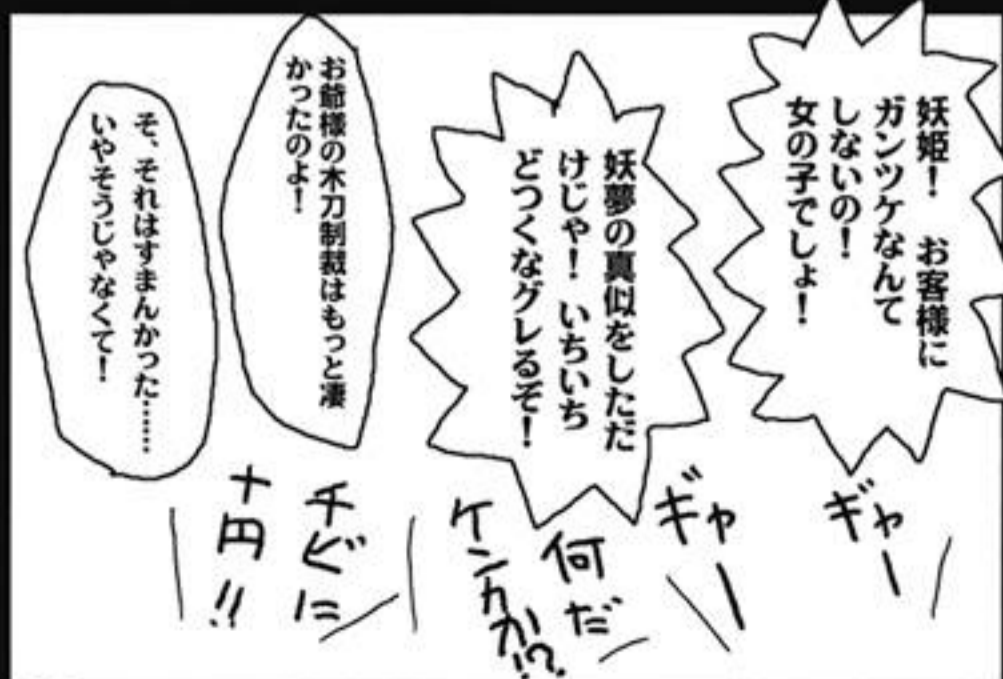 妖姫！　お客様に
ガンツケなんて
しないの！
女の子でしょ！
妖夢の真似をしただ
けじゃ！いちいち
どつくなグレるぞ！
お爺様の木刀制裁はもっと凄
かったのよ！
そ、それはすまんかった……
いやそうじゃなくて！
ギャー
ギャー
何だ
ケンカか!?
チビに
十円!!